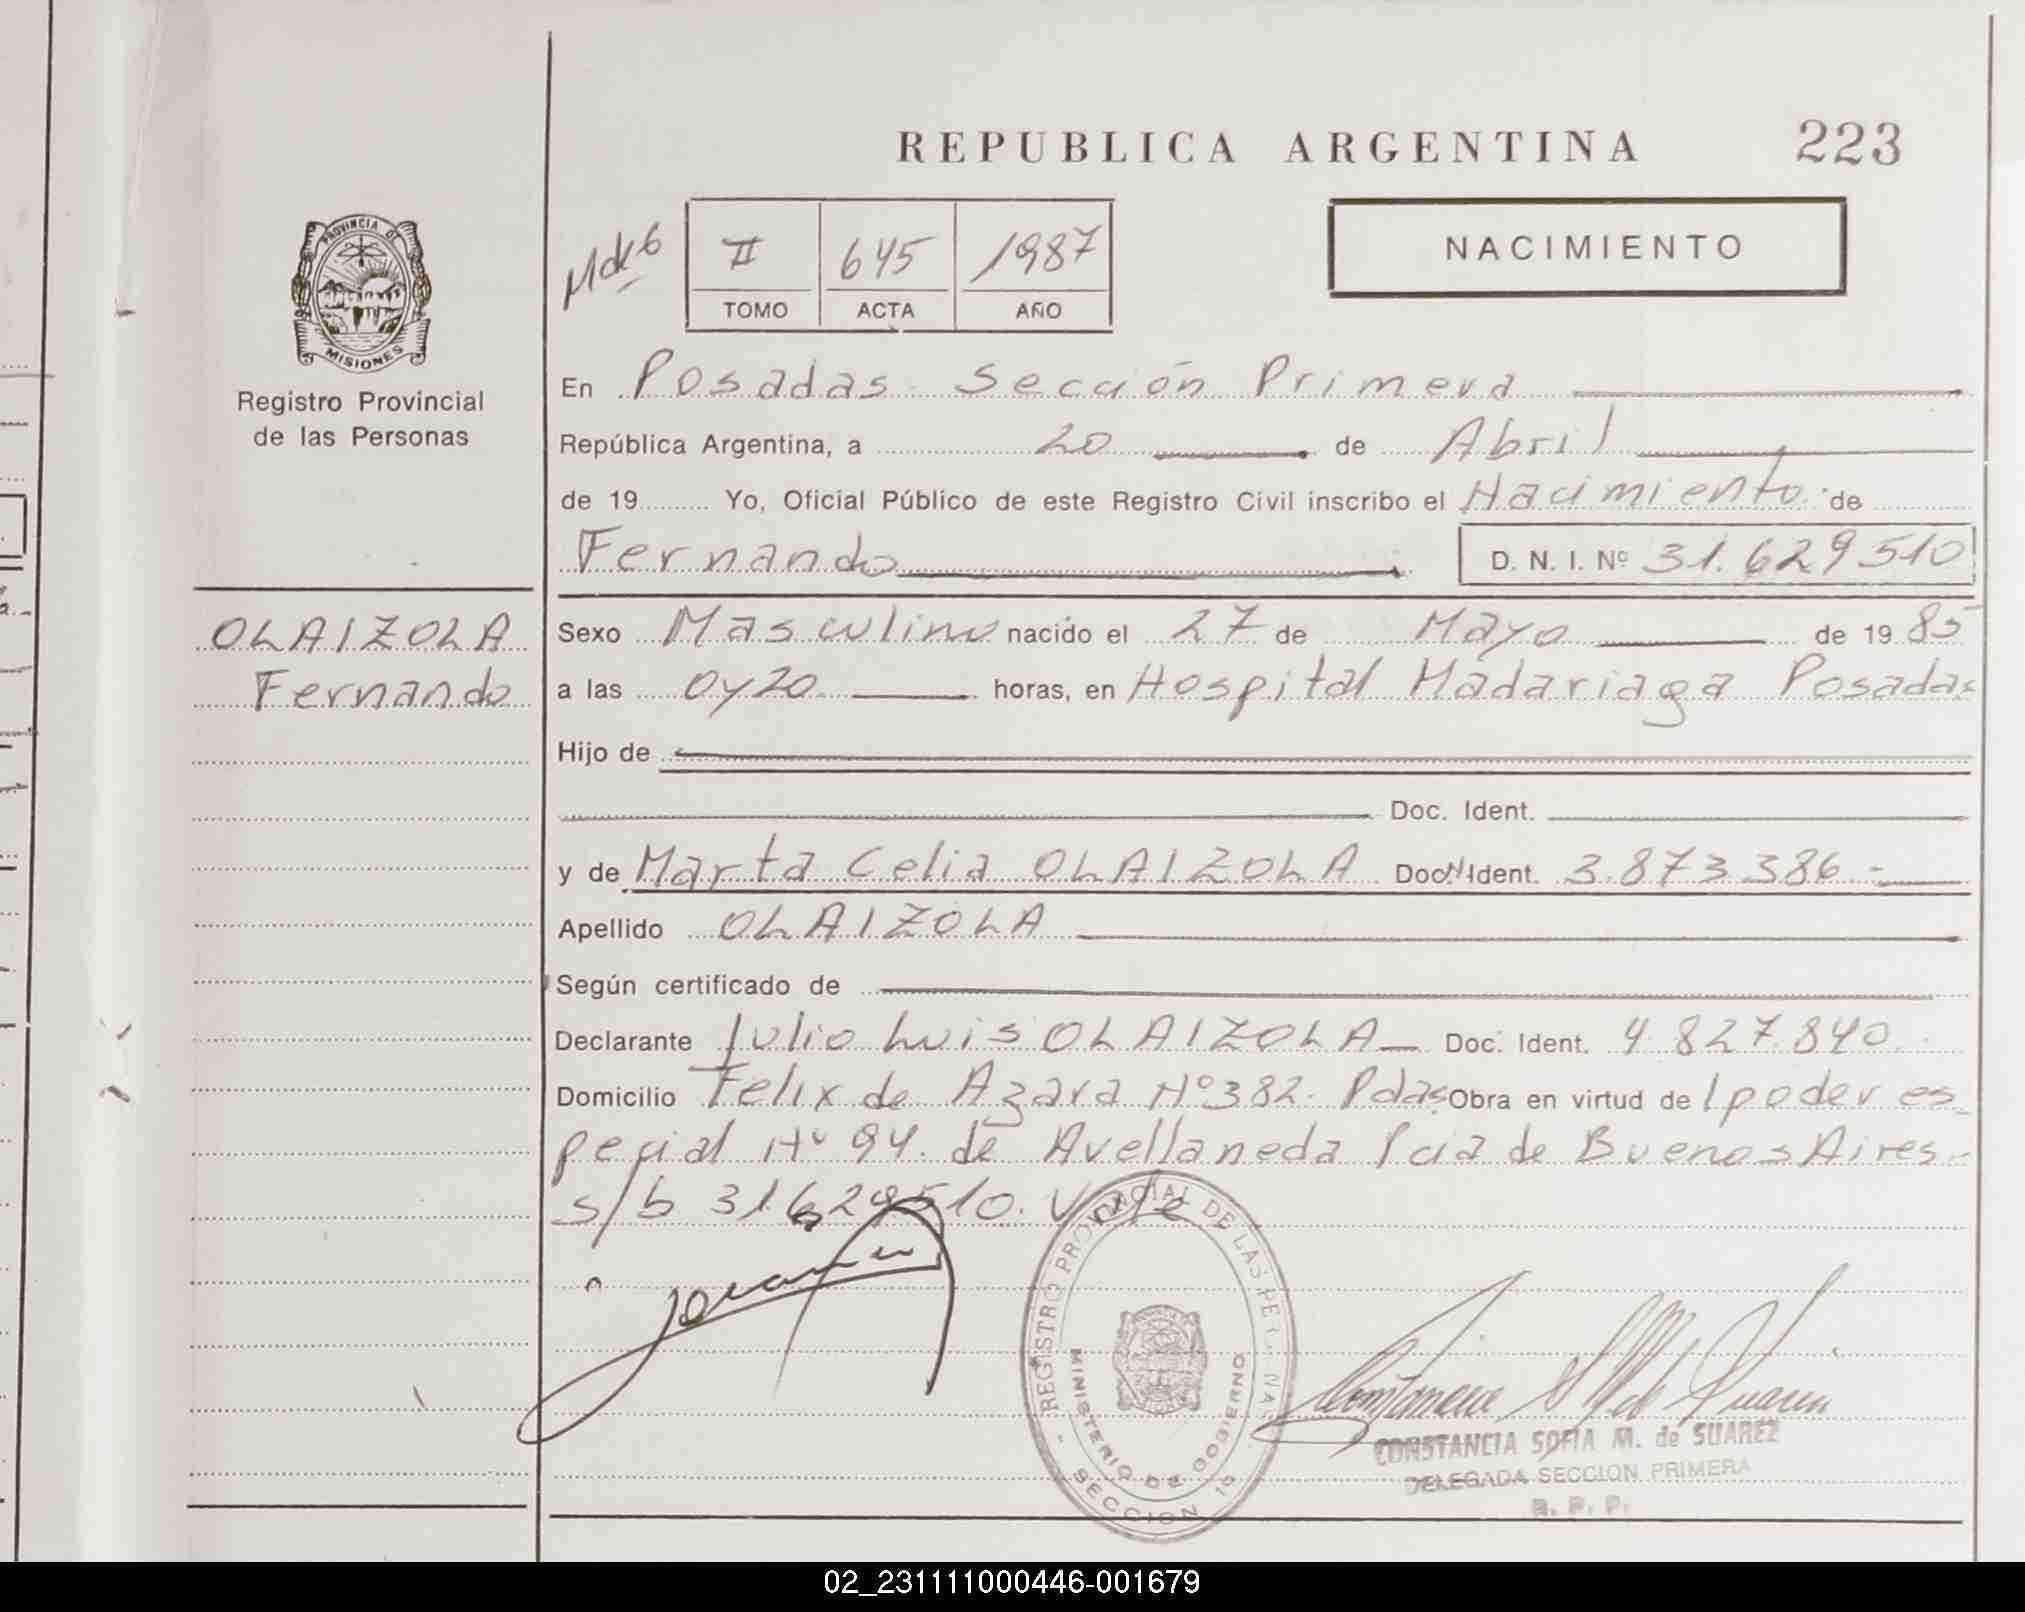 REPUBLICA ARGENTINA 223
PROVINCIA DE
MISIONES
Registro Provincial
de las Personas
II 645 1987
TOMO ACTA AÑO
NACIMIENTO
En Posadas Sección Primera
República Argentina, a 20 de Abril
de 19 Yo, Oficial Público de este Registro Civil inscribo el Nacimiento de
Fernando D. N. I. Nº 31.629510
OLAIZOLA
Fernando
Sexo Masculino nacido el 27 de Mayo de 1985
a las 0y20 horas, en Hospital Madariaga Posadas
Hijo de
Doc. Ident.
y de Marta Celia OLAIZOLA Doc. Ident. 3.873.386.-
Apellido OLAIZOLA
Según certificado de
Declarante Julio Luis OLAIZOLA Doc. Ident. 4.827.840
Domicilio Felix de Azara Nº 382. Pdas Obra en virtud de 1 poder es
pecial Nº 94. de Avellaneda Pcia de Buenos Aires.-
s/b 31.629510. Vale
REGISTRO PROVINCIAL DE LAS PERSONAS
MINISTERIO DE GOBIERNO
SECCION 1º
CONSTANCIA SOFIA M. de SUAREZ
DELEGADA SECCION PRIMERA
R. P. P.
02_231111000446-001679